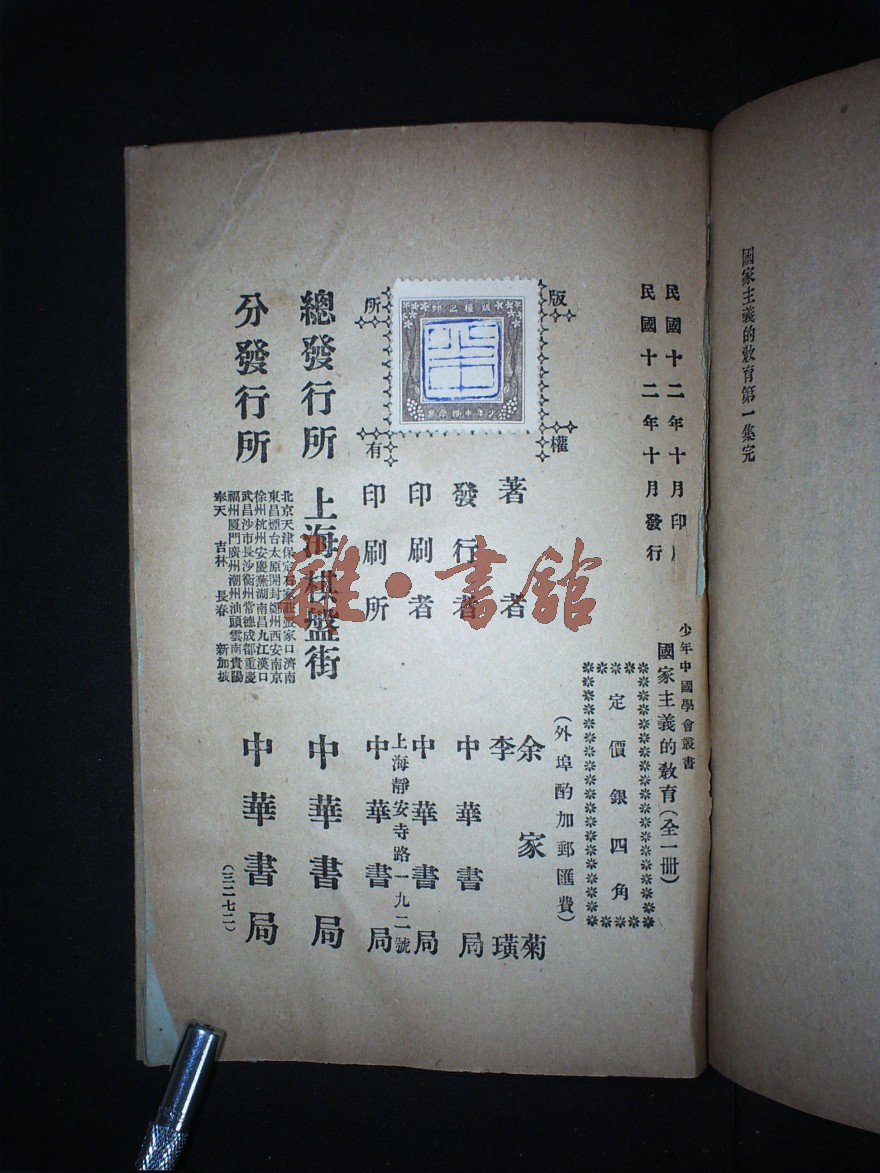 國家主義的敎育第一集完
民國十二年十月印
民國十二年十月發行
少年中國學會叢書
國家主義的敎育(全一冊)
定價銀四角
(外埠酌加郵匯費)
版權所有
版權之印
著者 余家菊
李璜
發行者 中華書局
印刷者 中華書局
上海靜安寺路一九二號
印刷所 中華書局
總發行所 上海棋盤街 中華書局
分發行所
北京天津保定石家莊張家口濟南
東昌煙台太原開封鄭州西安南京
徐州杭州安慶蕪湖南昌九江漢口
武昌沙市長沙衡州常德成都重慶
福州厦門廣州潮州汕頭雲南貴陽
奉天 吉林 長春 新加坡
中華書局
(三二七二)
雜·書館